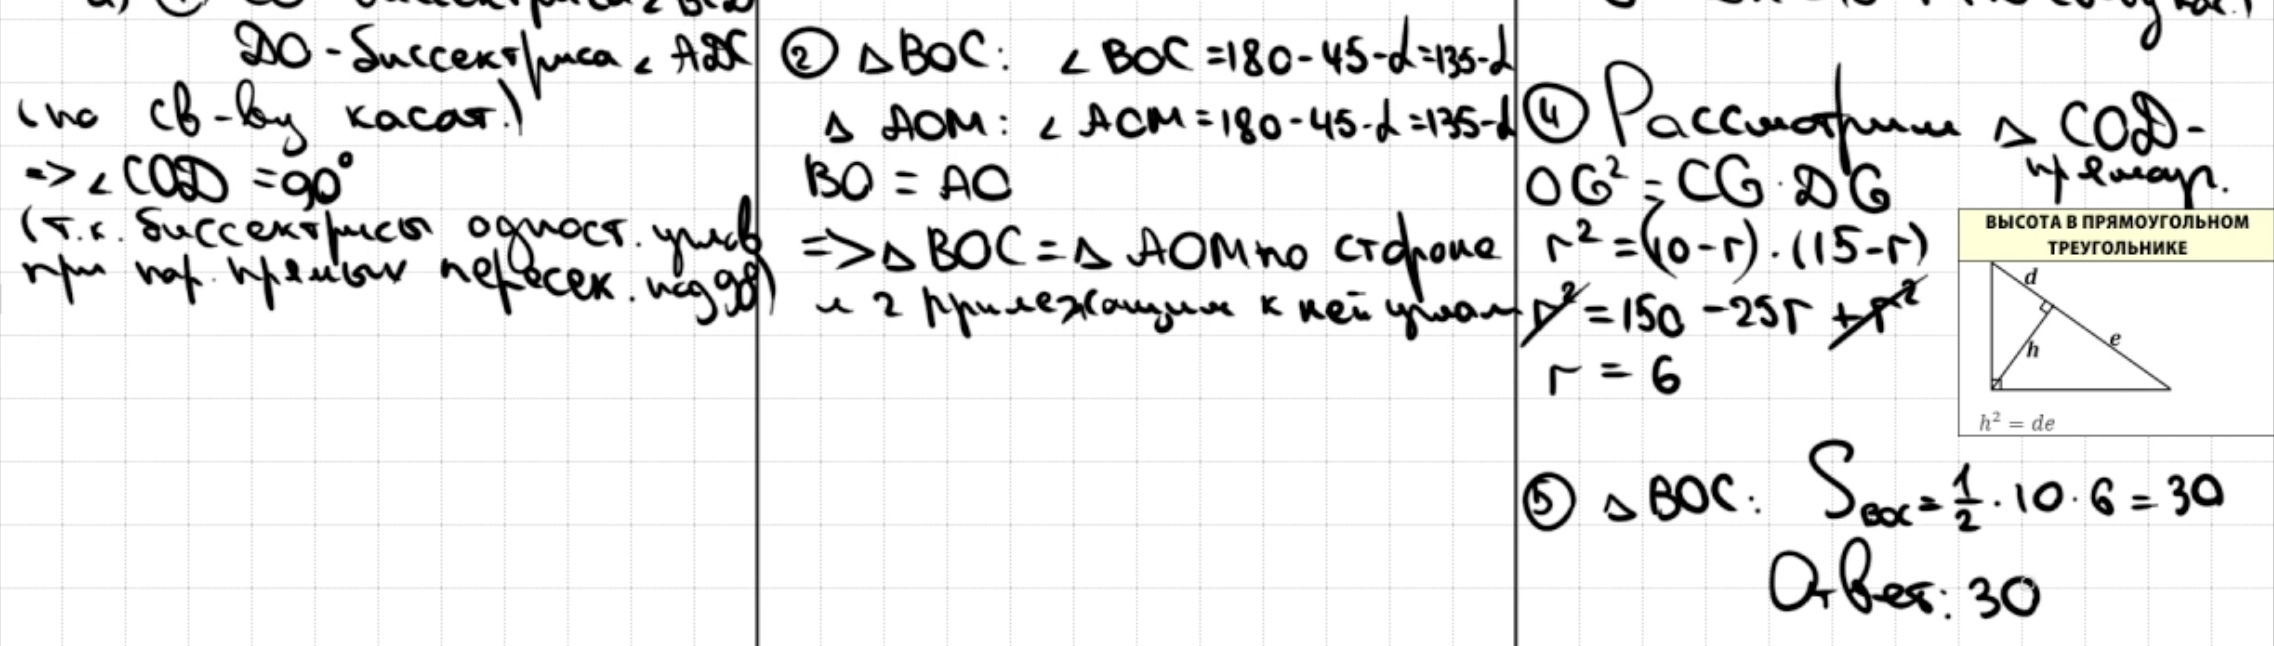 DO - биссектриса ∠ ADC
(по св-ву касат.)
=> ∠ COD = 90°
(т.к. биссектрисы одност. углов
при пар. прямых пересек. под 90)
② △ BOC: ∠ BOC = 180 - 45 - α = 135 - α
△ AOM: ∠ AOM = 180 - 45 - α = 135 - α
BO = AO
=> △ BOC = △ AOM по стороне
и 2 прилежащим к ней углам
④ Рассмотрим △ COD -
прямоуг.
OG² = CG · DG
r² = (10 - r) · (15 - r)
r² = 150 - 25r + r²
r = 6
ВЫСОТА В ПРЯМОУГОЛЬНОМ
ТРЕУГОЛЬНИКЕ
d
e
h
h² = de
⑤ △ BOC: S BOC = 1/2 · 10 · 6 = 30
Ответ: 30